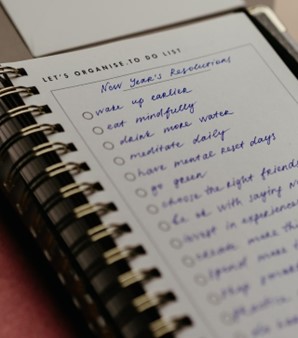 LET'S ORGANISE. TO DO LIST
New Year's Resolutions
wake up earlier
eat mindfully
drink more water
meditate daily
have mental reset days
go green
choose the right friends
be ok with saying
invest in experiences
create more
spend more
stay
practice